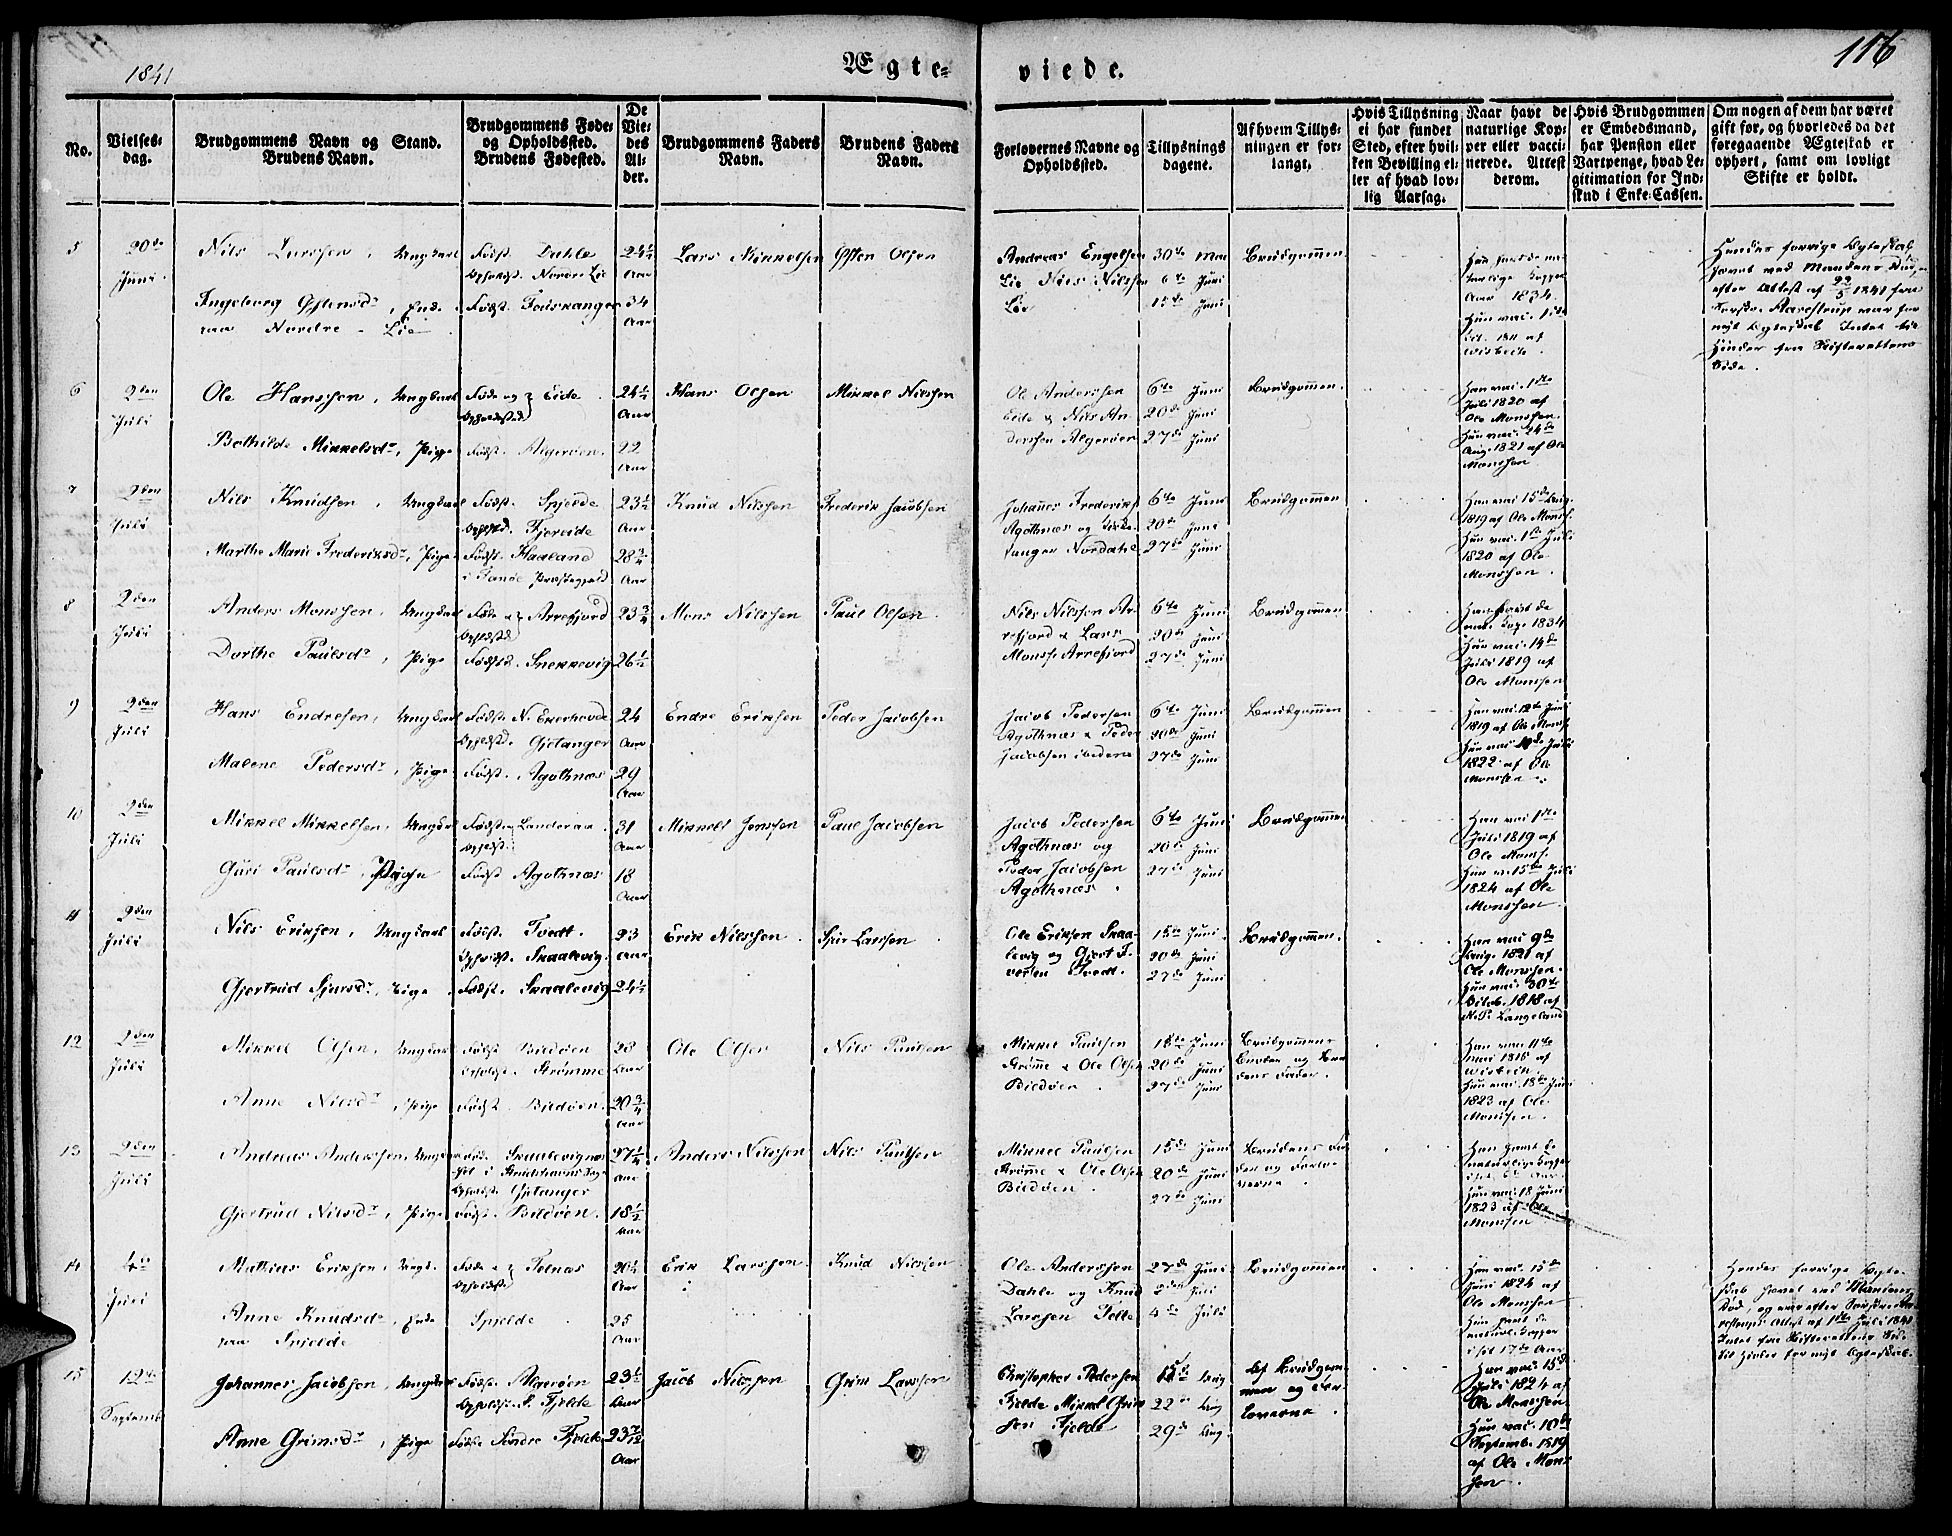 1841
Ægte-
viede.
116
No.
Vielses-
dag.
Brudgommens Navn og Stand.
Brudens Navn.
Brudgommens Føde-
og Opholdssted.
Brudens Fødested.
De
Vie-
des
Al-
der.
Brudgommens Faders
Navn.
Brudens Faders
Navn.
Forlovernes Navne og
Opholdssted.
Tillysnings
dagene.
Af hvem Tillys-
ningen er for-
langt.
Hvis Tillysning
ei har fundet
Sted, efter hvil-
ken Bevilling el-
ler af hvad lov-
lig Aarsag.
Naar havt de
naturlige Kop-
per eller vacci-
nerede. Attest
derom.
Hvis Brudgommen
er Embedsmand,
har Pension eller
Vartpenge, hvad Le-
gitimation for Ind-
skud i Enke-Cassen.
Om nogen af dem har været
gift før, og hvorledes da det
foregaaende Ægteskab er
ophørt, samt om lovligt
Skifte er holdt.
5
20de
Juni
Nils Larssen, Ungkarl
Ingeborg Østensdr, Enke
paa Nordre Lie
Fødst. Dahle
Opholdst. Nordre Lie
Fødst. Fouskanger
24½
Aar
34
Aar
Lars Mikkelsen
Østen Olsen
Andreas Engelsen
Lie Nils Nilssen
Lie
30te Mai
6te Juni
15de Juni
Brudgommen
Han havde na-
turlige Kopper
Aar 1834.
Hun vac. 1ste
Oct. 1811 af
Wisbech.
Hendes forrige Ægteskab
hævet ved Mandens Død,
efter Attest af 22/5 1841 fra
Sorskr. Harestrup var for
nyt Ægteskab Intet til
Hinder fra Skifterettens
Side.
6
2den
Juli
Ole Hanssen, Ungkarl
Bothilde Mikkelsdr, Pige
Føde og Eide
Opholdssted
Fødst. Algerøen.
24½
Aar
22
Aar
Hans Olsen
Mikkel Nilssen
Ole Anderssen
Eide & Nils An-
derssen Algerøen
6te Juni
20de Juni
27de Juni
Brudgommen.
Han vac. 1ste
Juli 1820 af
Ole Monssen.
Hun vac. 24de
Aug. 1821 af Ole
Monssen
7
2den
Juli
Nils Knudsen, Ungkarl
Marthe Marie Frederiksdr, Pige
Fødst. Spjelde
Opholdst. Fjereide
Fødst. Haaland
i Fanøe Præstegjeld
23½
Aar
28¾
Aar
Knud Nilssen
Frederik Jacobsen
Johannes Frederiks.
Agothnæs og
Nordahl
6te Juni
20de Juni
27de Juni
Brudgommen
Han vac. 15de Aug.
1819 af Ole Monss.
Hun vac. 1ste Juli
1820 af Ole
Monssen.
8
2den
Juli
Anders Monssen, Ungkarl
Dorthe Paulsdr, Pige
Føde og Arrefjord
Opholdsted
Fødsted. Snekkevig
23¾
26½
Mons Nilssen
Paul Olsen
Nils Nilssen Ar-
refjord & Lars
Monss. Arrefjord
6te Juni
20de Juni
27de Juni
Brudgommen
Han havde de
nat. Kop. 1834
Hun vac. 14de
Juli 1819 af
Ole Monssen
9
2den
Juli
Hans Endresen, Ungkarl
Malene Pedersdr, Pige
Fødst. N. Ekerhovde
Opholdst. Gjetanger
Fødst. Agothnæs
24
Aar
29
Aar
Endre Eriksen
Peder Jacobsen
Jacob Pedersen
Agothnæs & Peder
Jacobsen ibidem
6te Juni
20de Juni
27de Juni
Brudgommen
Han vac. 12te Juni
1819 af Ole Monss.
Hun vac. Juli
1822 af Ole
Monssen
10
2den
Juli
Mikkel Mikkelsen, Ungkarl
Guri Paulsdr, Pige
Fødst. og Landeraa
Opholdst.
Fødst. Agothnæs
31
Aar
18
Aar
Mikkel Jonssen
Paul Jacobsen
Jacob Pedersen
Agothnæs og
Peder Jacobsen
Agothnæs.
6te Juni
20de Juni
27de Juni
Brudgommen
Han vac. 1ste
Juli 1819 af
Ole Monss.
Hun v. 15de Juli
1824 af Ole
Monssen.
11
2den
Juli
Nils Eriksen, Ungkarl
Gjertrud Sjursdr, Pige
Fødst. Tvedt.
Opholdst. Skaalevig.
Fødst. Skaalevig
23
Aar
24½
Erik Nilssen
Sjur Larssen
Ole Eriksen Skaa-
levig og Gjert I-
versen Tvedt.
15de Juni
20de Juni
27de Juni
Brudgommen.
Han vac. 9de
Aug. 1821 af
Ole Monssen.
Hun vac. 30te
Octob. 1818 af
N. P. Langeland
12
2den
Juli
Mikkel Olsen, Ungkarl
Anne Nilsdr, Pige
Fødst. Bildøen
Opholdst. Strømme
Fødst. Bildøen.
28
Aar
20¾
Aar
Ole Olsen
Nils Paulsen
Mikkel Paulsen
Strømme & Ole Olsen
Bildøen.
15de Juni
20de Juni
27de Juni
Brudgommens
Broder og Bru-
dens Fader.
Han vac. 11te
Mai 1816 af
Wisbech.
Hun vac. 18de Juni
1823 af Ole
Monssen.
13
2den
Juli
Andreas Anderssen, Ungkarl
Gjertrud Nilsdr, Pige
Opholdst. Gjetanger
Fødst. Bildøen.
27¼
Aar
18½
Aar
Anders Nilssen
Nils Paulsen
Mikkel Paulsen
Strømme & Ole Olsen
Bildøen.
15de Juni
20de Juni
27de Juni
Brudens Fa-
der og Forlo-
verne.
Han havt de
naturlige Kopper
i sit 6te Aar.
Hun vac. 18 Juni
1823 af Ole
Monssen
14
4de
Juli
Mathias Eriksen, Ungk.
Anne Knudsdr, Enke
paa Spjelde
Føde og Telnæs
Opholdsted
Spjelde
20¼
Aar
25
Aar
Erik Larssen
Knud Nilssen
Ole Anderssen
Dahle og Knud
Larssen Telle
27de Juni
2den Juli
4de Juli
Brudgommen
Han vac. 15de
Juni 1824 af
Ole Monssen
Hun havt de
naturl. Kopper
i sit 17de Aar
Hendes forrige Ægte-
skab hævet ved Mandens
Død, og var efter Sorskr. Ha-
restrups Attest af 1ste Juli 1841
Intet fra Skifterettens Side
til Hinder for nyt Ægteskab.
15
12te
Septemb.
Johannes Jacobsen, Ungkarl
Anne Grimsdr, Pige
Fødst. Algerøen
Opholdst. S. Fjelde
Fødst. Søndre Fjelde
23½
Aar
23 7/12
Aar
Jacob Nilssen
Grim Larssen
Christopher Pedersen
Fjelde Mikkel Grim-
sen Fjelde
15de Aug
22de Aug
29de Aug.
Af Brudgom-
men og For-
loverne.
Han vac. 15de
Juli 1824 af
Ole Monssen
Hun vac. 10de
Septemb. 1819
af Ole Mons-
sen.